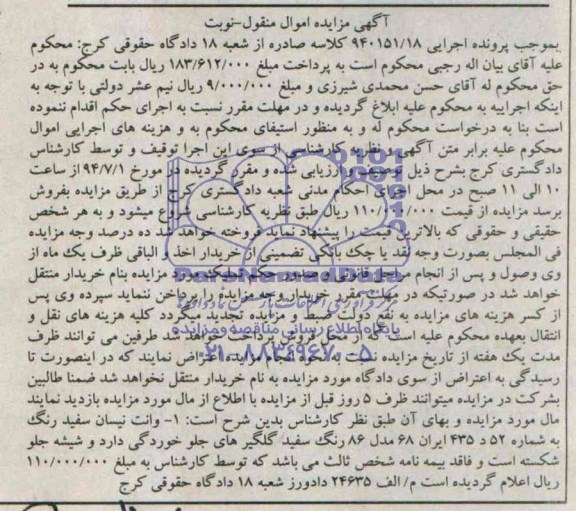 آگهی مزایده اموال منقول-نوبت
بموجب پرونده اجرایی ۹۴۰۱۵۱/۱۸ کلاسه صادره از شعبه ۱۸ دادگاه حقوقی کرج: محکوم
علیه آقای بیان اله رجبی محکوم است به پرداخت مبلغ ۱۸۳/۶۱۲/۰۰۰ ریال بابت محکوم به در
حق محکوم له آقای حسن محمدی شیرزی و مبلغ ۹/۰۰۰/۰۰۰ ریال نیم عشر دولتی با توجه به
اینکه اجراییه به محکوم علیه ابلاغ گردیده و در مهلت مقرر نسبت به اجرای حکم اقدام ننموده
است بنا به درخواست محکوم له و به منظور استیفای محکوم به و هزینه های اجرایی اموال
محکوم علیه برابر متن آگهی و نظریه کارشناسی از سوی این اجرا توقیف و توسط کارشناس
دادگستری کرج بشرح ذیل توصیف و ارزیابی شده و مقرر گردیده در مورخ ۹۴/۷/۱ از ساعت
۱۰ الی ۱۱ صبح در محل اجرای احکام مدنی شعبه دادگستری کرج از طریق مزایده بفروش
برسد مزایده از قیمت ۱۱۰/۰۰۰/۰۰۰ ریال طبق نظریه کارشناسی شروع میشود و به هر شخص
حقیقی و حقوقی که بالاترین قیمت را پیشنهاد نماید فروخته خواهد شد ده درصد وجه مزایده
فی المجلس بصورت وجه نقد یا چک بانکی تضمینی از خریدار اخذ و الباقی ظرف یک ماه از
وی وصول و پس از انجام مراحل قانونی و صدور حکم تملیک مورد مزایده بنام خریدار منتقل
خواهد شد در صورتیکه در مهلت مقرر خریدار وجه مزایده را پرداخت ننماید سپرده وی پس
از کسر هزینه های مزایده به نفع دولت ضبط و مزایده تجدید میگردد کلیه هزینه های نقل و
انتقال بعهده محکوم علیه است که از محل فروش پرداخت خواهد شد طرفین می توانند ظرف
مدت یک هفته از تاریخ مزایده نسبت به نحوه انجام مزایده اعتراض نمایند که در اینصورت تا
رسیدگی به اعتراض از سوی دادگاه مورد مزایده به نام خریدار منتقل نخواهد شد ضمنا طالبین
بشرکت در مزایده میتوانند ظرف ۵ روز قبل از مزایده با اطلاع از مال مورد مزایده بازدید نمایند
مال مورد مزایده و بهای آن طبق نظر کارشناس بدین شرح است: ۱- وانت نیسان سفید رنگ
به شماره ۵۲ د ۴۳۵ ایران ۶۸ مدل ۸۶ رنگ سفید گلگیر های جلو خوردگی دارد و شیشه جلو
شکسته است و فاقد بیمه نامه شخص ثالث می باشد که توسط کارشناس به مبلغ ۱۱۰/۰۰۰/۰۰۰
ریال اعلام گردیده است م/ الف ۲۴۶۳۵ دادورز شعبه ۱۸ دادگاه حقوقی کرج
ParsNamadData
پایگاه اطلاع رسانی مناقصه و مزایده
۰۲۱-۸۸۳۴۹۶۷۰-۵